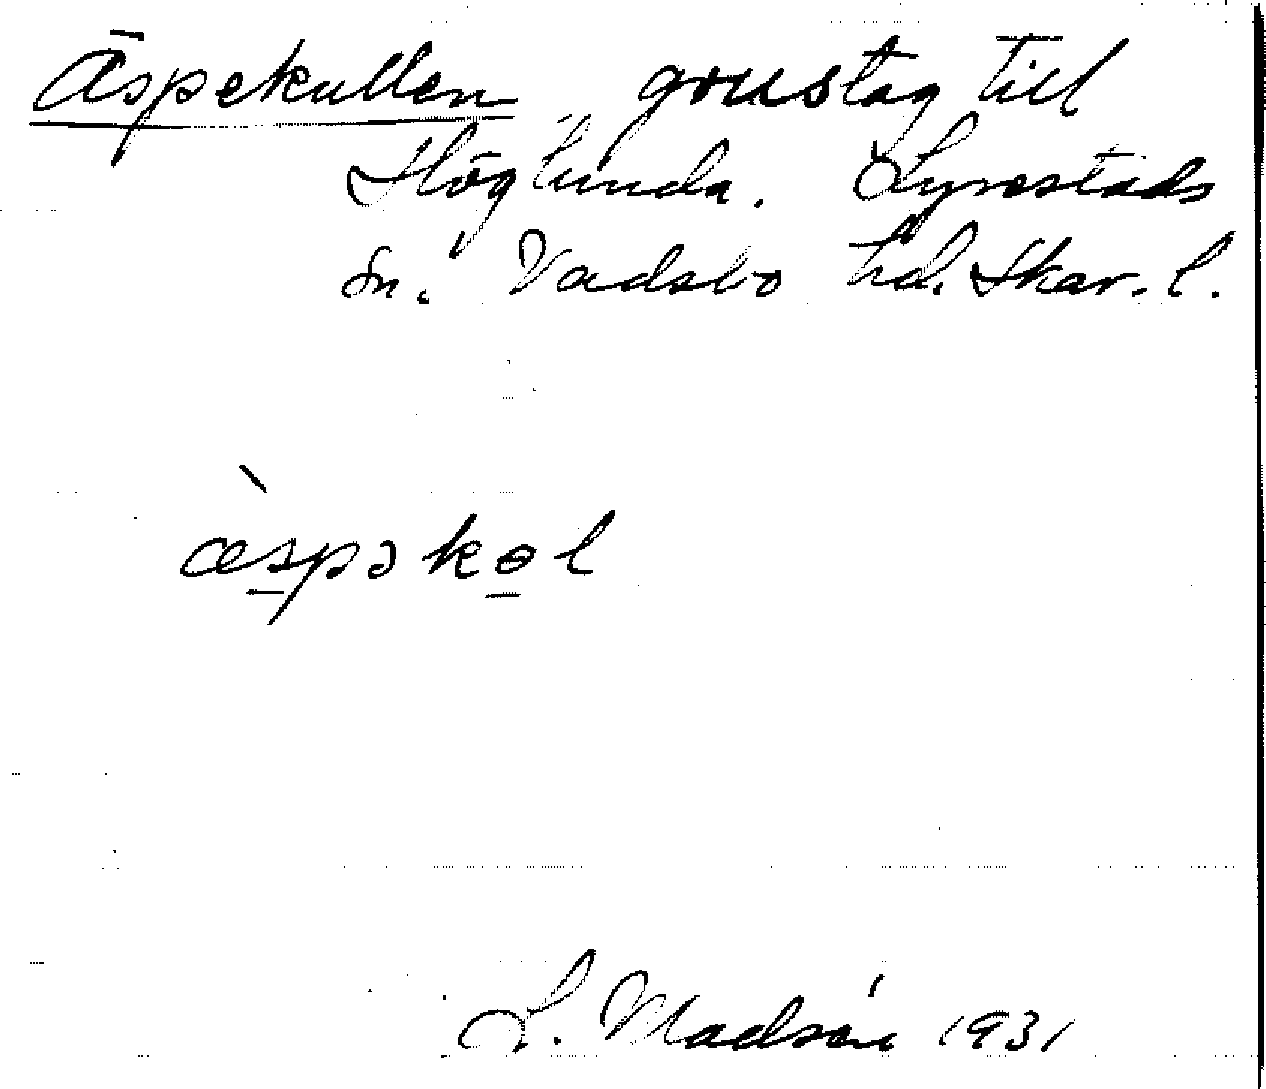 Äspekullen grustag till
Höglunda. Lyrestads
sn. Vadsbo hd. Skar. l.
æ̀spəkɵl
L. Madsén 1931